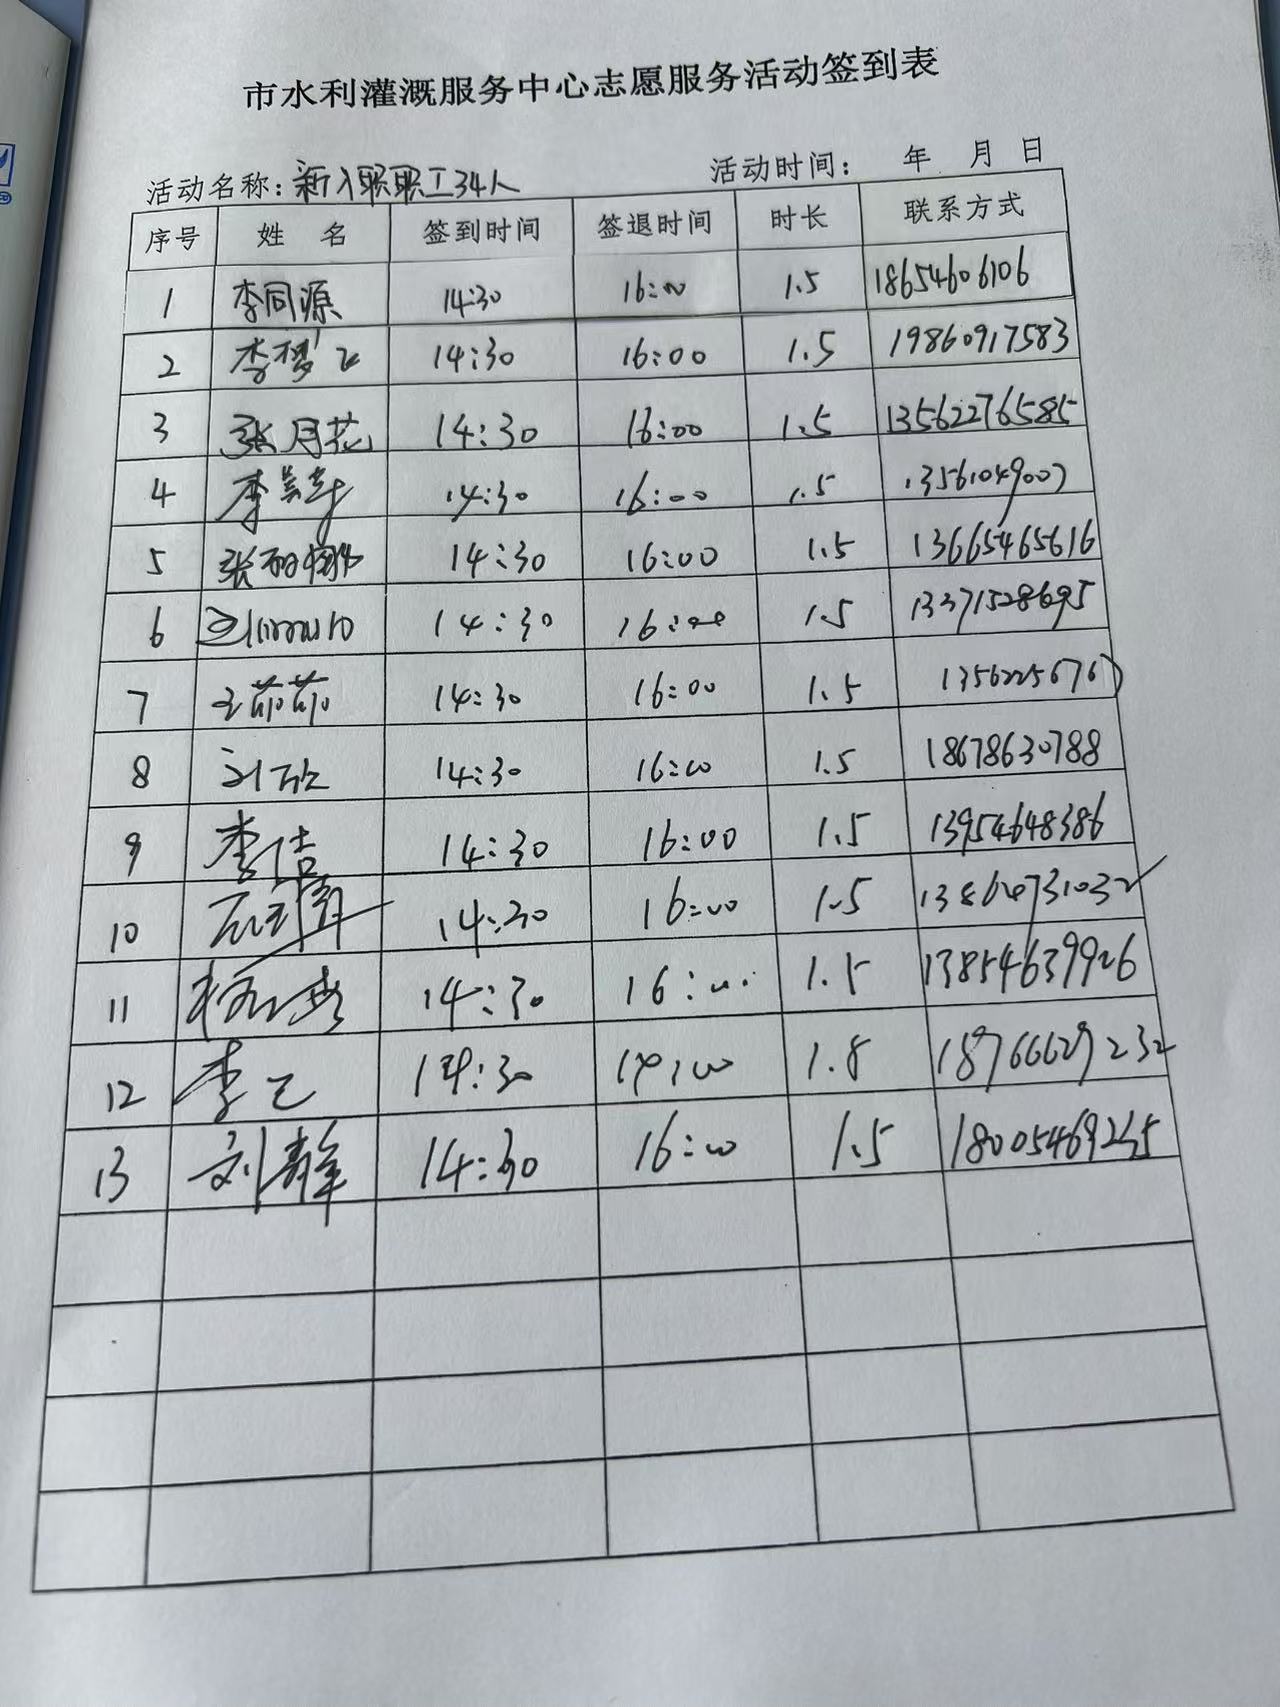 市水利灌溉服务中心志愿服务活动签到表
活动名称：新入职职工34人 活动时间： 年 月 日
序号 姓 名 签到时间 签退时间 时长 联系方式
1 李同源 14:30 16:00 1.5 18654606106
2 李梦飞 14:30 16:00 1.5 19860917583
3 张月花 14:30 16:00 1.5 13562276585
4 李美华 14:30 16:00 1.5 13561049007
5 张 14:30 16:00 1.5 13665465616
6 14:30 16:00 1.5 13371528695
7 王茹茹 14:30 16:00 1.5 13562256767
8 刘欣 14:30 16:00 1.5 18678630788
9 李洁 14:30 16:00 1.5 13954648386
10 14:30 16:00 1.5 13864731032
11 14:30 16:00 1.5 13854639926
12 李 14:30 1.8 18766629232
13 刘静 14:30 16:00 1.5